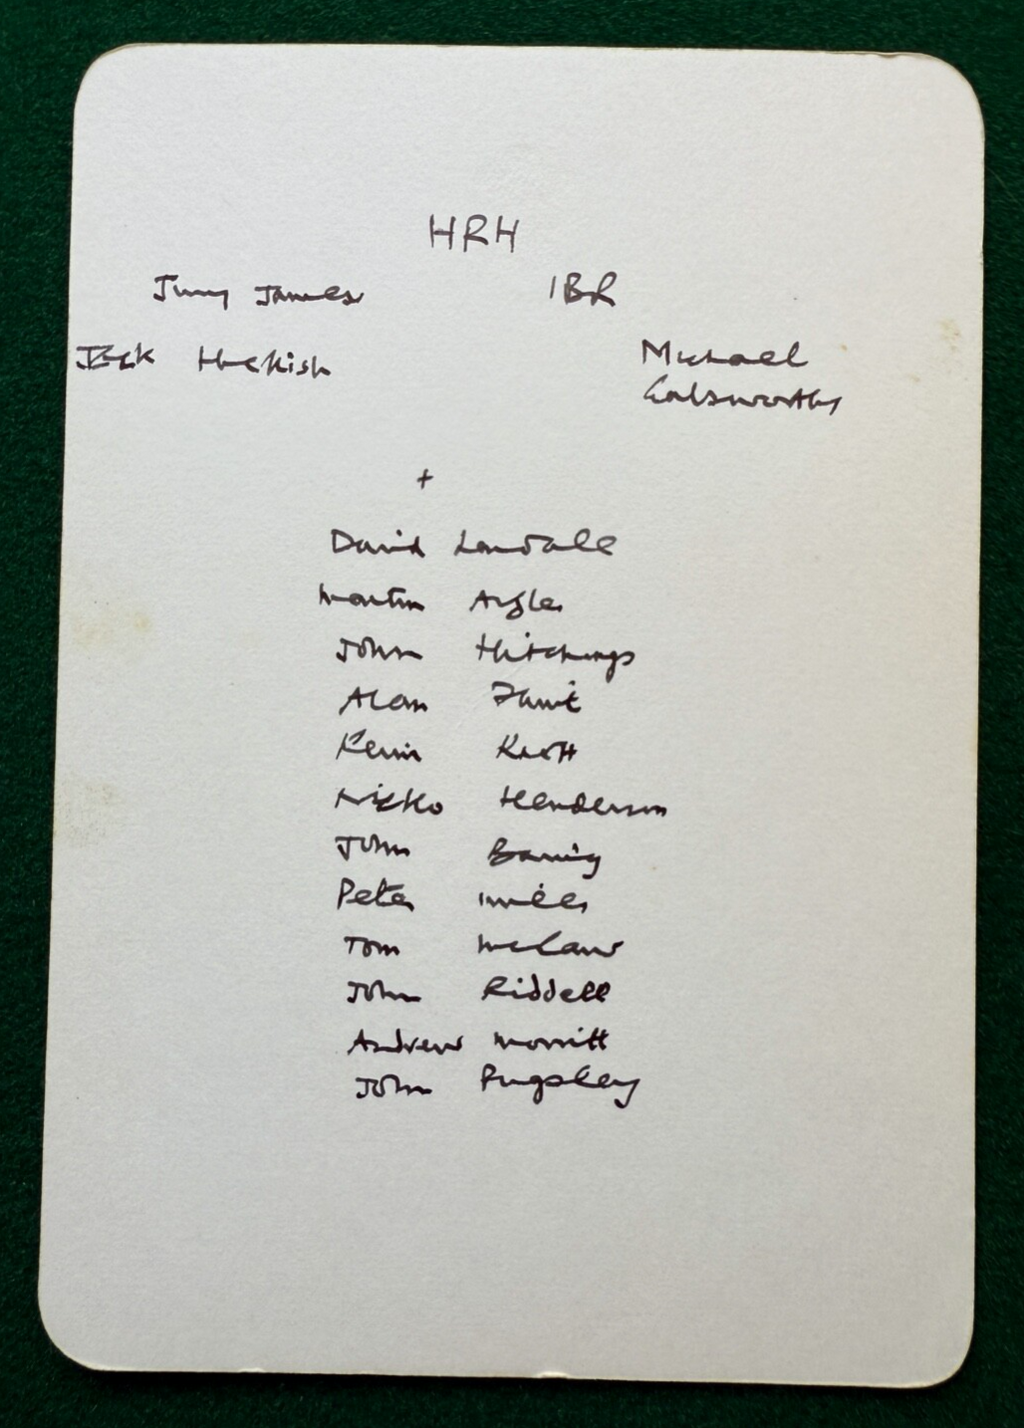 HRH
Jimmy James IBR
Jack Michael
Galsworthy
+
David Landale
Martin Argles
John Hitchings
Alan
Kevin Knott
Nikko Henderson
John Baring
Peter
Tom
John Riddell
Andrew Morritt
John Pugsley